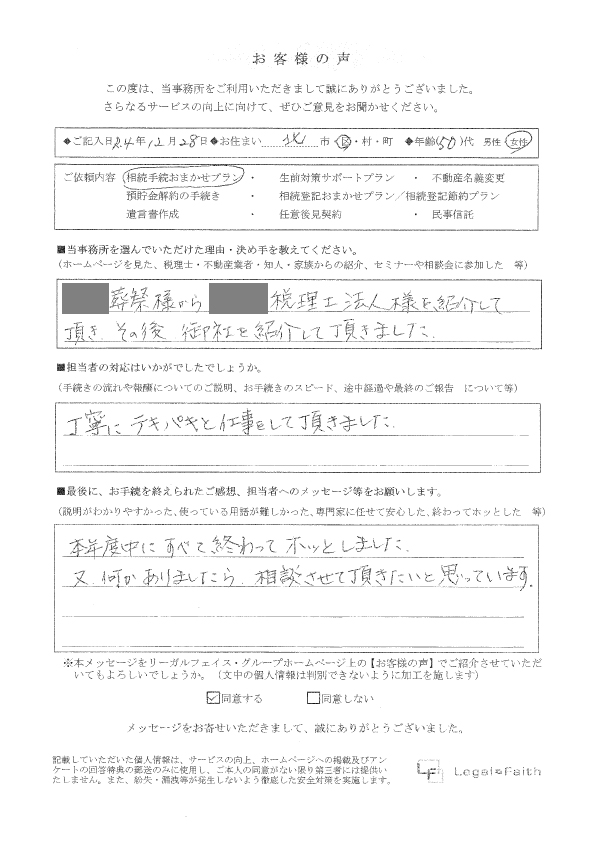 お客様の声
この度は、当事務所をご利用いただきまして誠にありがとうございました。
さらなるサービスの向上に向けて、ぜひご意見をお聞かせください。
◆ご記入日 R4年12月28日 ◆お住まい 北 市・区・村・町 ◆年齢(50)代 男性・女性
ご依頼内容 相続手続おまかせプラン ・ 生前対策サポートプラン ・ 不動産名義変更
預貯金解約の手続き ・ 相続登記おまかせプラン／相続登記節約プラン
遺言書作成 ・ 任意後見契約 ・ 民事信託
■当事務所を選んでいただけた理由・決め手を教えてください。
(ホームページを見た、税理士・不動産業者・知人・家族からの紹介、セミナーや相談会に参加した 等)
葬祭様から 税理士法人様を紹介して
頂き、その後、御社を紹介して頂きました。
■担当者の対応はいかがでしたでしょうか。
(手続きの流れや報酬についてのご説明、お手続きのスピード、途中経過や最終のご報告 について等)
丁寧に テキパキと仕事をして頂きました。
■最後に、お手続を終えられたご感想、担当者へのメッセージ等をお願いします。
(説明がわかりやすかった、使っている用語が難しかった、専門家に任せて安心した、終わってホッとした 等)
本年度中に すべて終わって ホッとしました。
又、何かありましたら、相談させて頂きたいと思っています。
※本メッセージをリーガルフェイス・グループホームページ上の【お客様の声】でご紹介させていただ
いてもよろしいでしょうか。（文中の個人情報は判別できないように加工を施します）
☑同意する □同意しない
メッセージをお寄せいただきまして、誠にありがとうございました。
記載していただいた個人情報は、サービスの向上、ホームページへの掲載及びアン
ケートの回答特典の郵送のみに使用し、ご本人の同意がない限り第三者には提供い
たしません。また、紛失・漏洩等が発生しないよう徹底した安全対策を実施します。
LF Legal Faith